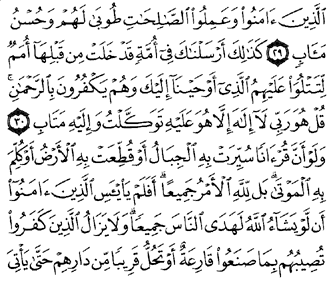 ٱلَّذِينَ ءَامَنُوا۟ وَعَمِلُوا۟ ٱلصَّٰلِحَٰتِ طُوبَىٰ لَهُمْ وَحُسْنُ
مَـَٔابٍ ٢٩ كَذَٰلِكَ أَرْسَلْنَٰكَ فِىٓ أُمَّةٍ قَدْ خَلَتْ مِن قَبْلِهَآ أُمَمٌ
لِّتَتْلُوَا۟ عَلَيْهِمُ ٱلَّذِىٓ أَوْحَيْنَآ إِلَيْكَ وَهُمْ يَكْفُرُونَ بِٱلرَّحْمَٰنِ ۚ
قُلْ هُوَ رَبِّى لَآ إِلَٰهَ إِلَّا هُوَ عَلَيْهِ تَوَكَّلْتُ وَإِلَيْهِ مَتَابِ ٣٠
وَلَوْ أَنَّ قُرْءَانًا سُيِّرَتْ بِهِ ٱلْجِبَالُ أَوْ قُطِّعَتْ بِهِ ٱلْأَرْضُ أَوْ كُلِّمَ
بِهِ ٱلْمَوْتَىٰ ۗ بَل لِّلَّهِ ٱلْأَمْرُ جَمِيعًا ۗ أَفَلَمْ يَا۟يْـَٔسِ ٱلَّذِينَ ءَامَنُوٓا۟
أَن لَّوْ يَشَآءُ ٱللَّهُ لَهَدَى ٱلنَّاسَ جَمِيعًا ۗ وَلَا يَزَالُ ٱلَّذِينَ كَفَرُوا۟
تُصِيبُهُم بِمَا صَنَعُوا۟ قَارِعَةٌ أَوْ تَحُلُّ قَرِيبًا مِّن دَارِهِمْ حَتَّىٰ يَأْتِىَ